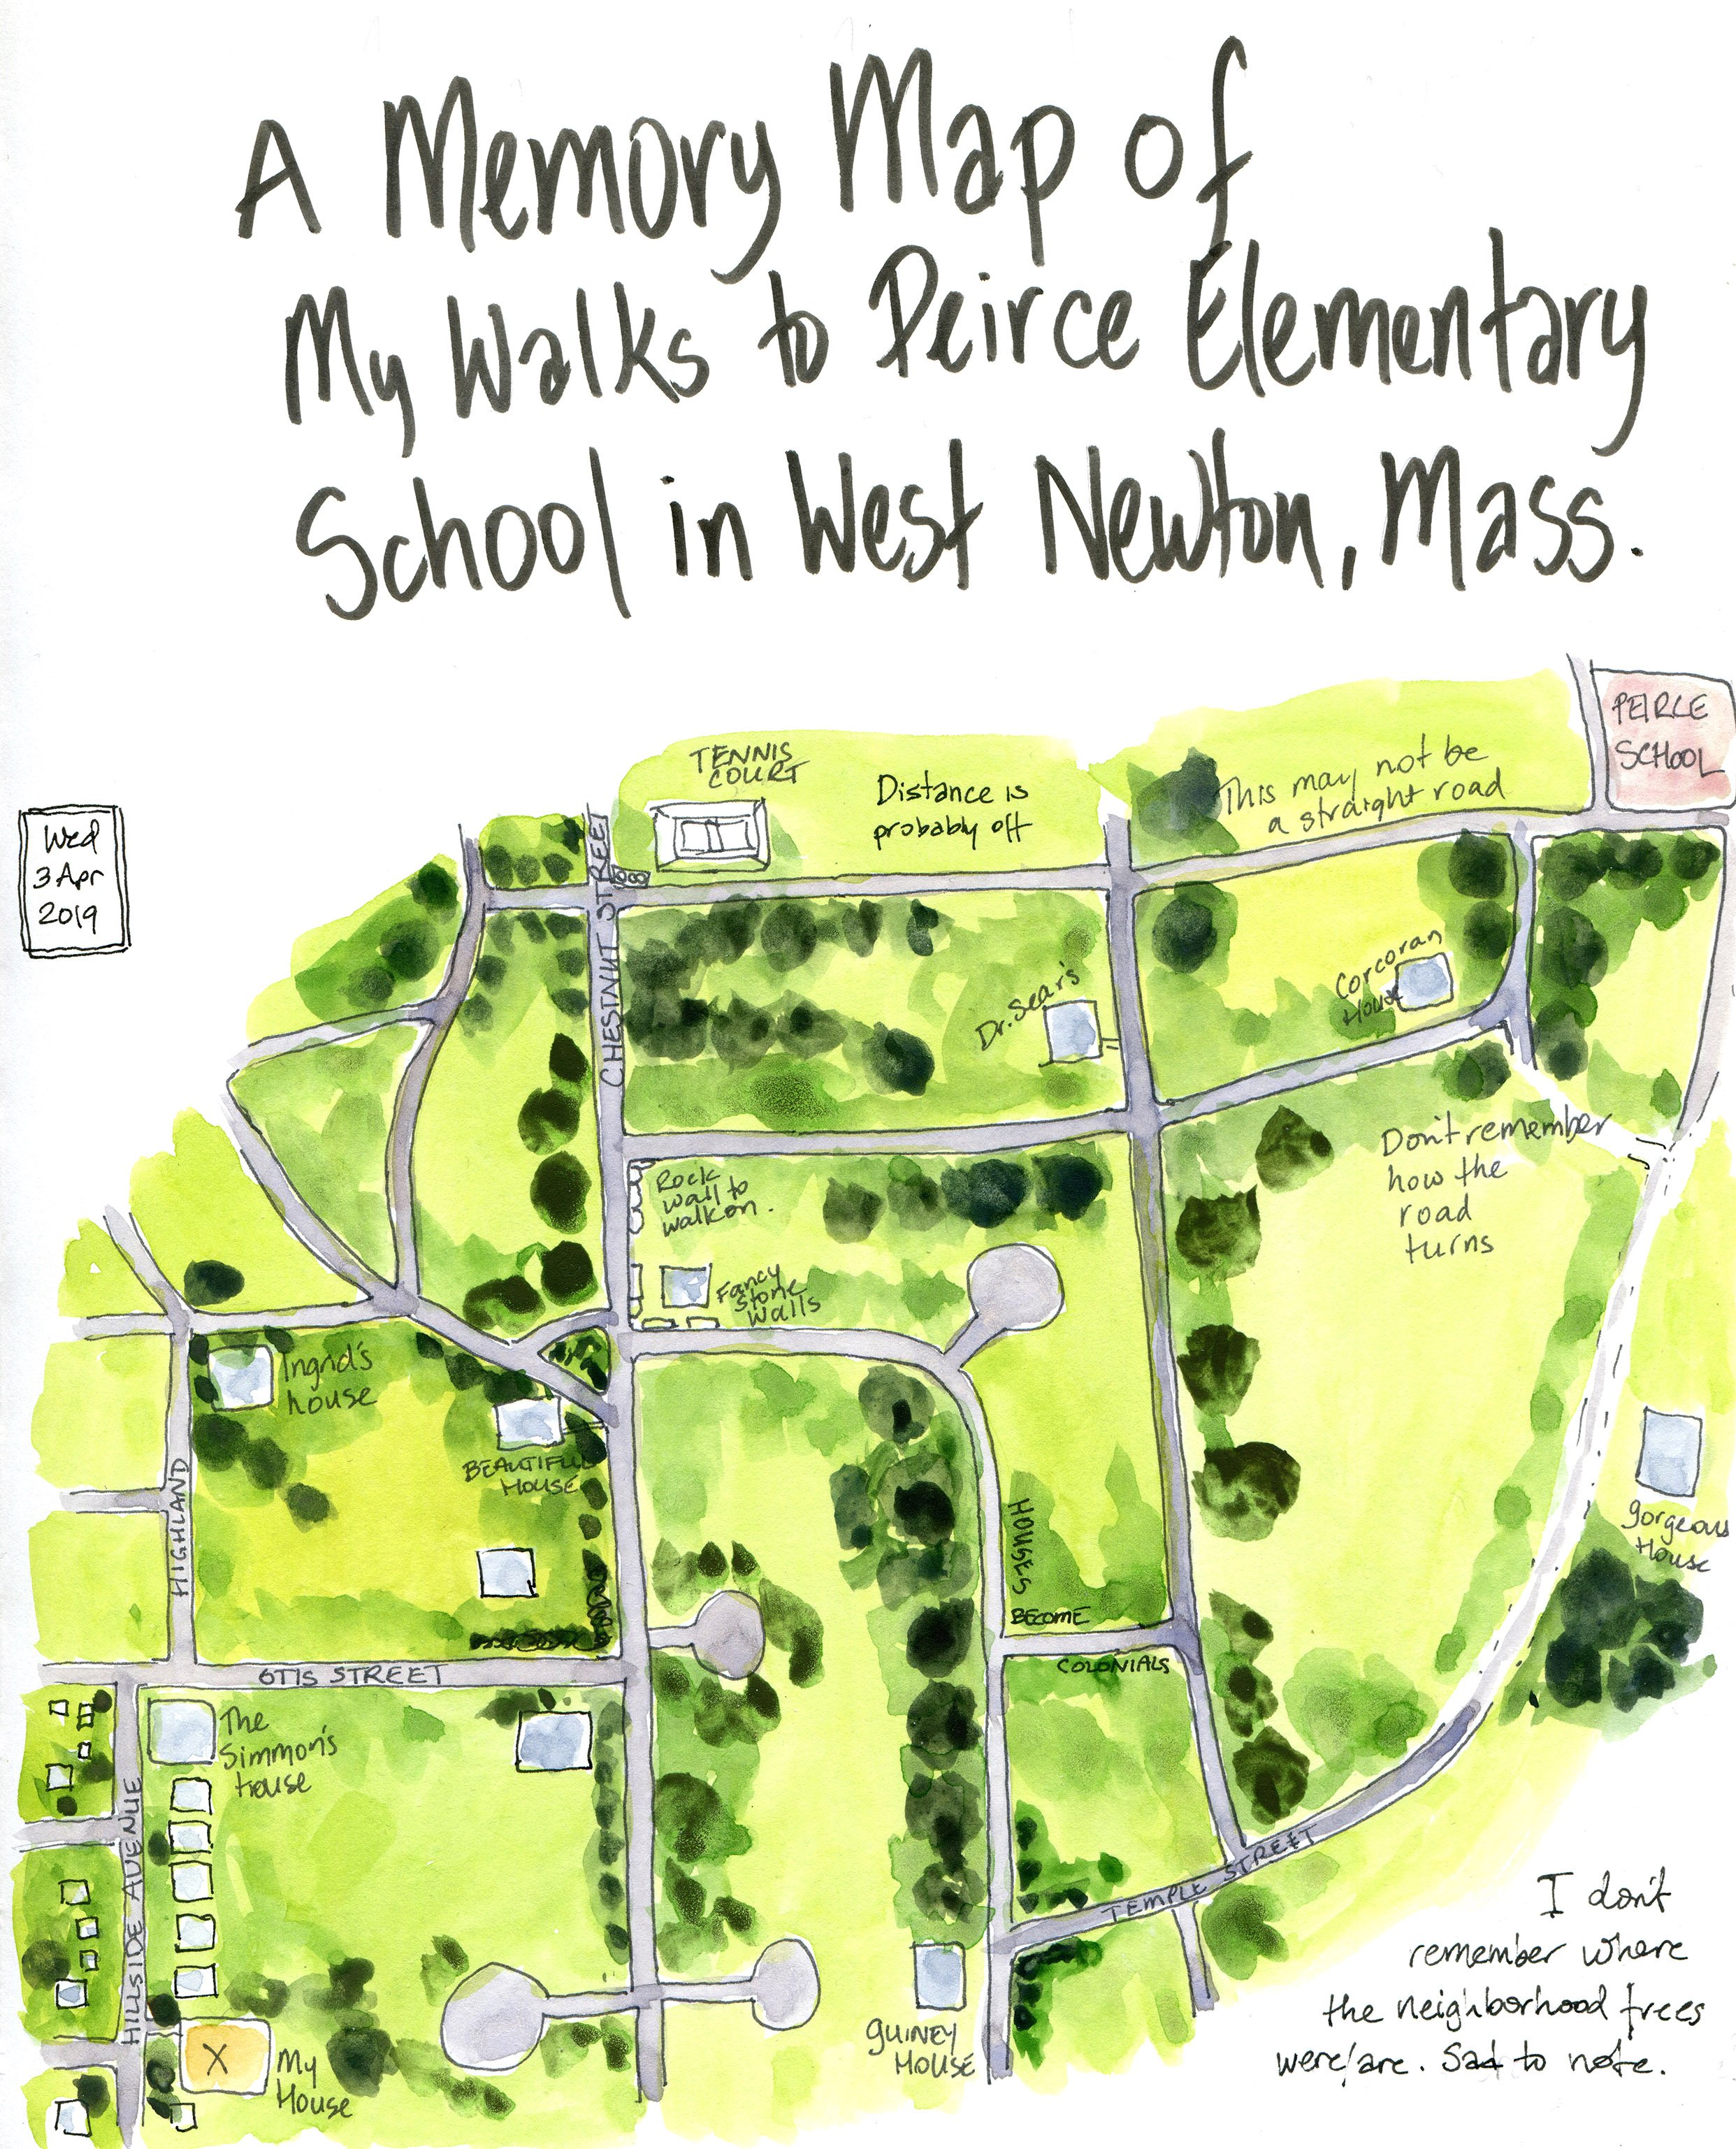 A Memory Map of
My Walks to Peirce Elementary
School in West Newton, Mass.
PEIRCE
SCHOOL
TENNIS
COURT
Distance is
probably off
This may not be
a straight road
Wed
3 Apr
2019
CHESTNUT STREET
Dr. Sear's
Corcoran
House
Don't remember
how the
road
turns
Rock
wall to
walk on.
Fancy
Stone
Walls
Ingrid's
house
BEAUTIFUL
HOUSE
HIGHLAND
gorgeous
House
HOUSES
BECOME
COLONIALS
OTIS STREET
The
Simmon's
House
HILLSIDE AVENUE
TEMPLE STREET
I don't
remember where
the neighborhood trees
were/are. Sad to note.
GUINEY
HOUSE
X
My
House